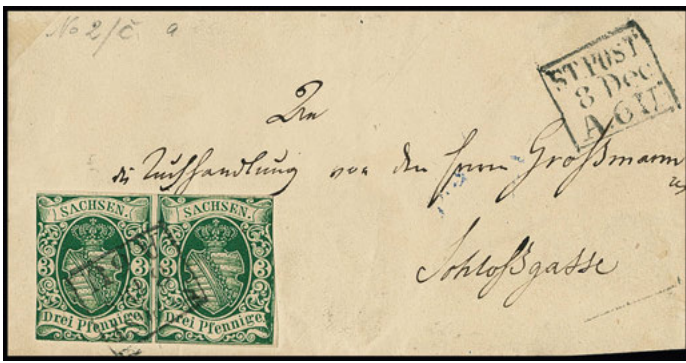 No 2/C a
ST. POST
8 Dec
A. 6 U.
An
die Tuchhandlung von den Herrn Großmann
Schloßgasse
SACHSEN. SACHSEN.
3 3 3 3
Drei Pfennige. Drei Pfennige.